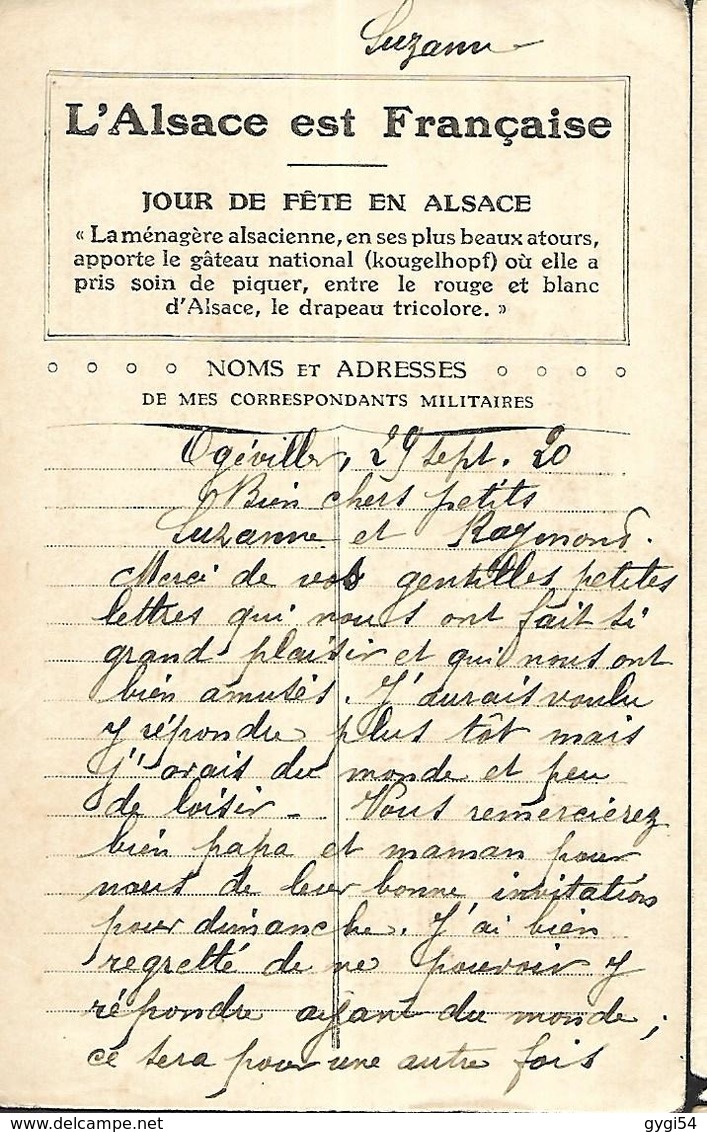 Suzanne
L'Alsace est Française
JOUR DE FÊTE EN ALSACE
« La ménagère alsacienne, en ses plus beaux atours,
apporte le gâteau national (kougelhopf) où elle a
pris soin de piquer, entre le rouge et blanc
d'Alsace, le drapeau tricolore. »
NOMS ET ADRESSES
DE MES CORRESPONDANTS MILITAIRES
Ogéviller, 29 sept. 20
Bien chers petits
Suzanne et Raymond.
Merci de vos gentilles petites
lettres qui nous ont fait si
grand plaisir et qui nous ont
bien amusés. J'aurais voulu
y répondre plus tôt mais
j'avais du monde et peu
de loisir - Vous remercierez
bien papa et maman pour
nous de leur bonne invitation
pour dimanche. J'ai bien
regretté de ne pouvoir y
répondre ayant du monde ;
ce sera pour une autre fois
www.delcampe.net
gygi54